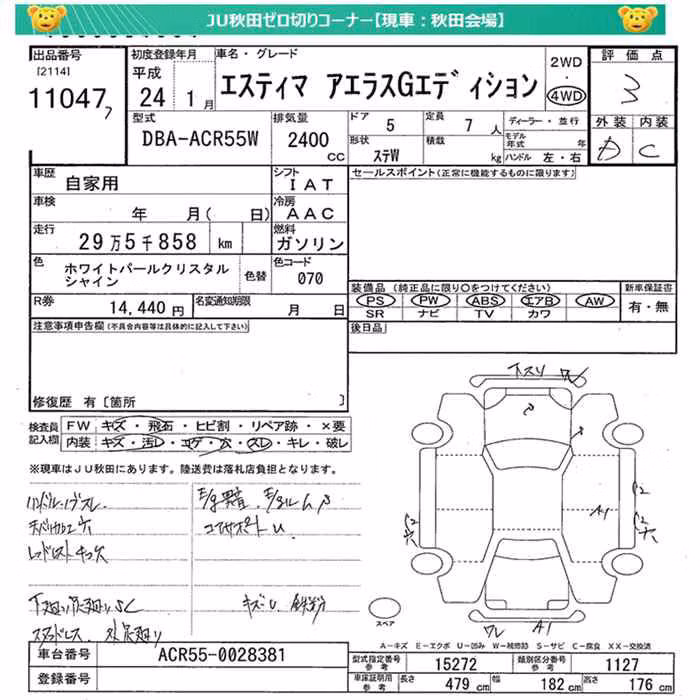 JU秋田ゼロ切りコーナー【現車:秋田会場】
出品番号 初度登録年月 車名・グレード 評価点
[2114] 平成 エスティマ アエラスGエディション 2WD 3
11047 24 1月 4WD
型式 排気量 ドア 5 定員 7人 ディーラー・並行 外装 内装
DBA-ACR55W 2400 CC 形状 ステW 積載 kg モデル年式 年 ハンドル 左・右 A C
車歴 自家用 シフト IAT セールスポイント(正常に機能するものに限ります)
車検 年 月( 日) 冷房 AAC
走行 29万5千858 km 燃料 ガソリン
色 ホワイトパールクリスタル 色替 色コード
シャイン 070 装備品(純正品に限り○をつけてください) 新車保証書
R券 14,440円 名変通知期限 月 日 PS PW ABS エアB AW 有・無
SR ナビ TV カワ
注意事項申告欄(不具合内容等は具体的に記入して下さい) 後日品
修復歴 有[箇所 ]
検査員 FW キズ・飛石・ヒビ割・リペア跡・×要
記入欄 内装 キズ・汚レ・コゲ・穴・スレ・キレ・破レ
下スリ ワレ
※現車はJU秋田にあります。陸送費は落札店負担となります。
ハンドル・ノブスレ
A1
下廻り
キズU
スタッドレス
ワレ A1
スペア
A-キズ E-エクボ U-凹み W-補修跡 S-サビ C-腐食 XX-交換済
車台番号 ACR55-0028381 型式指定番号 参考 15272 類別区分番号 参考 1127
登録番号 車庫証明用 参考 長さ 479cm 幅 182cm 高さ 176cm